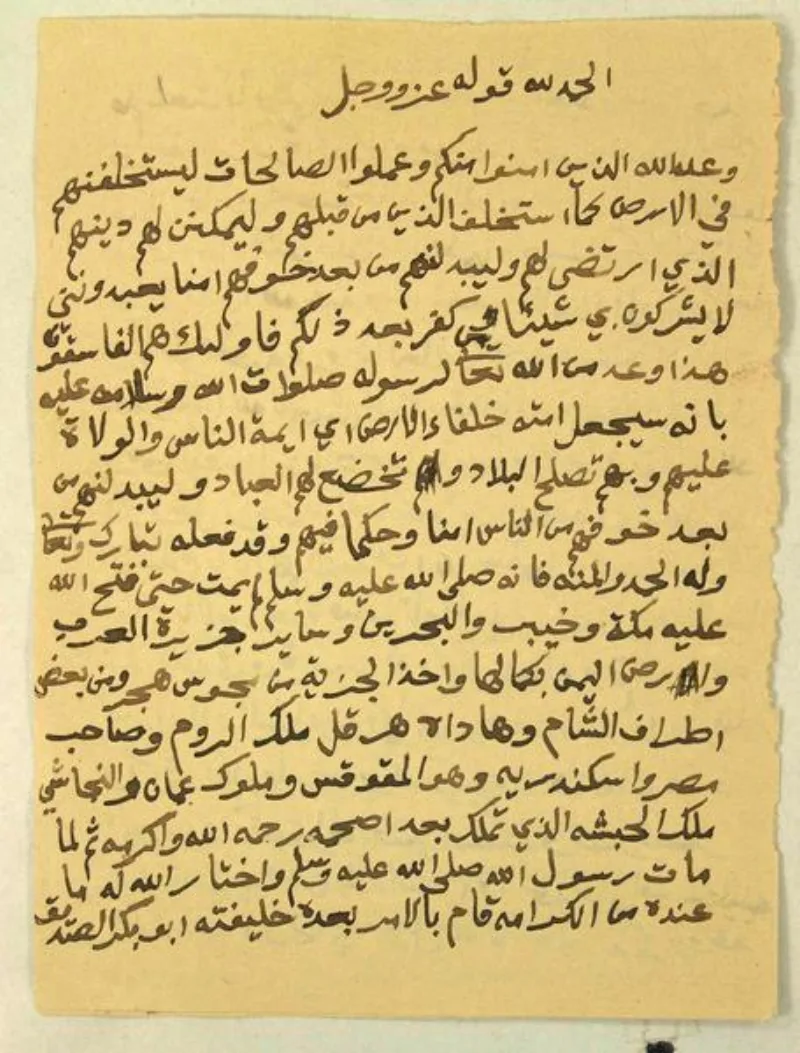 الحمد لله قوله عز ووجل
وعد الله الذين امنوا منكم وعملوا الصالحات ليستخلفنهم
في الارض كما استخلف الذين من قبلهم وليمكنن لهم دينهم
الذي ارتضى لهم وليبدلنهم من بعد خوفهم امنا يعبدونني
لا يشركون بي شيئا ومن كفر بعد ذلكم فاوليك هم الفاسقون
هذا وعد من الله تعالى لرسوله صلوات الله وسلامه عليه
بانه سيجعل امته خلفاء الارض اي ايمة الناس والولاة
عليهم وبهم تصلح البلاد و تخضع لهم العباد وليبدلنهم من
بعد خوفهم من الناس امنا وحكما فيهم وقد فعله تبارك وتعالى
وله الحمد والمنه فانه صلى الله عليه وسلم لم يمت حتى فتح الله
عليه مكة وخيبر والبحرين وساير جزيرة العرب
وارض اليمن بكمالها واخذ الجزية من مجوس هجر ومن بعض
اطراف الشام وهاداه هرقل ملك الروم وصاحب
مصر واسكندريه وهو المقوقس وملوك عمان والنجاشي
ملك الحبشه الذي تملك بعد اصحمه رحمه الله واكرمه ثم لما
مات رسول الله صلى الله عليه وسلم واختار الله له ما
عنده من الكرامه قام بالامر بعده خليفته ابو بكر الصديق